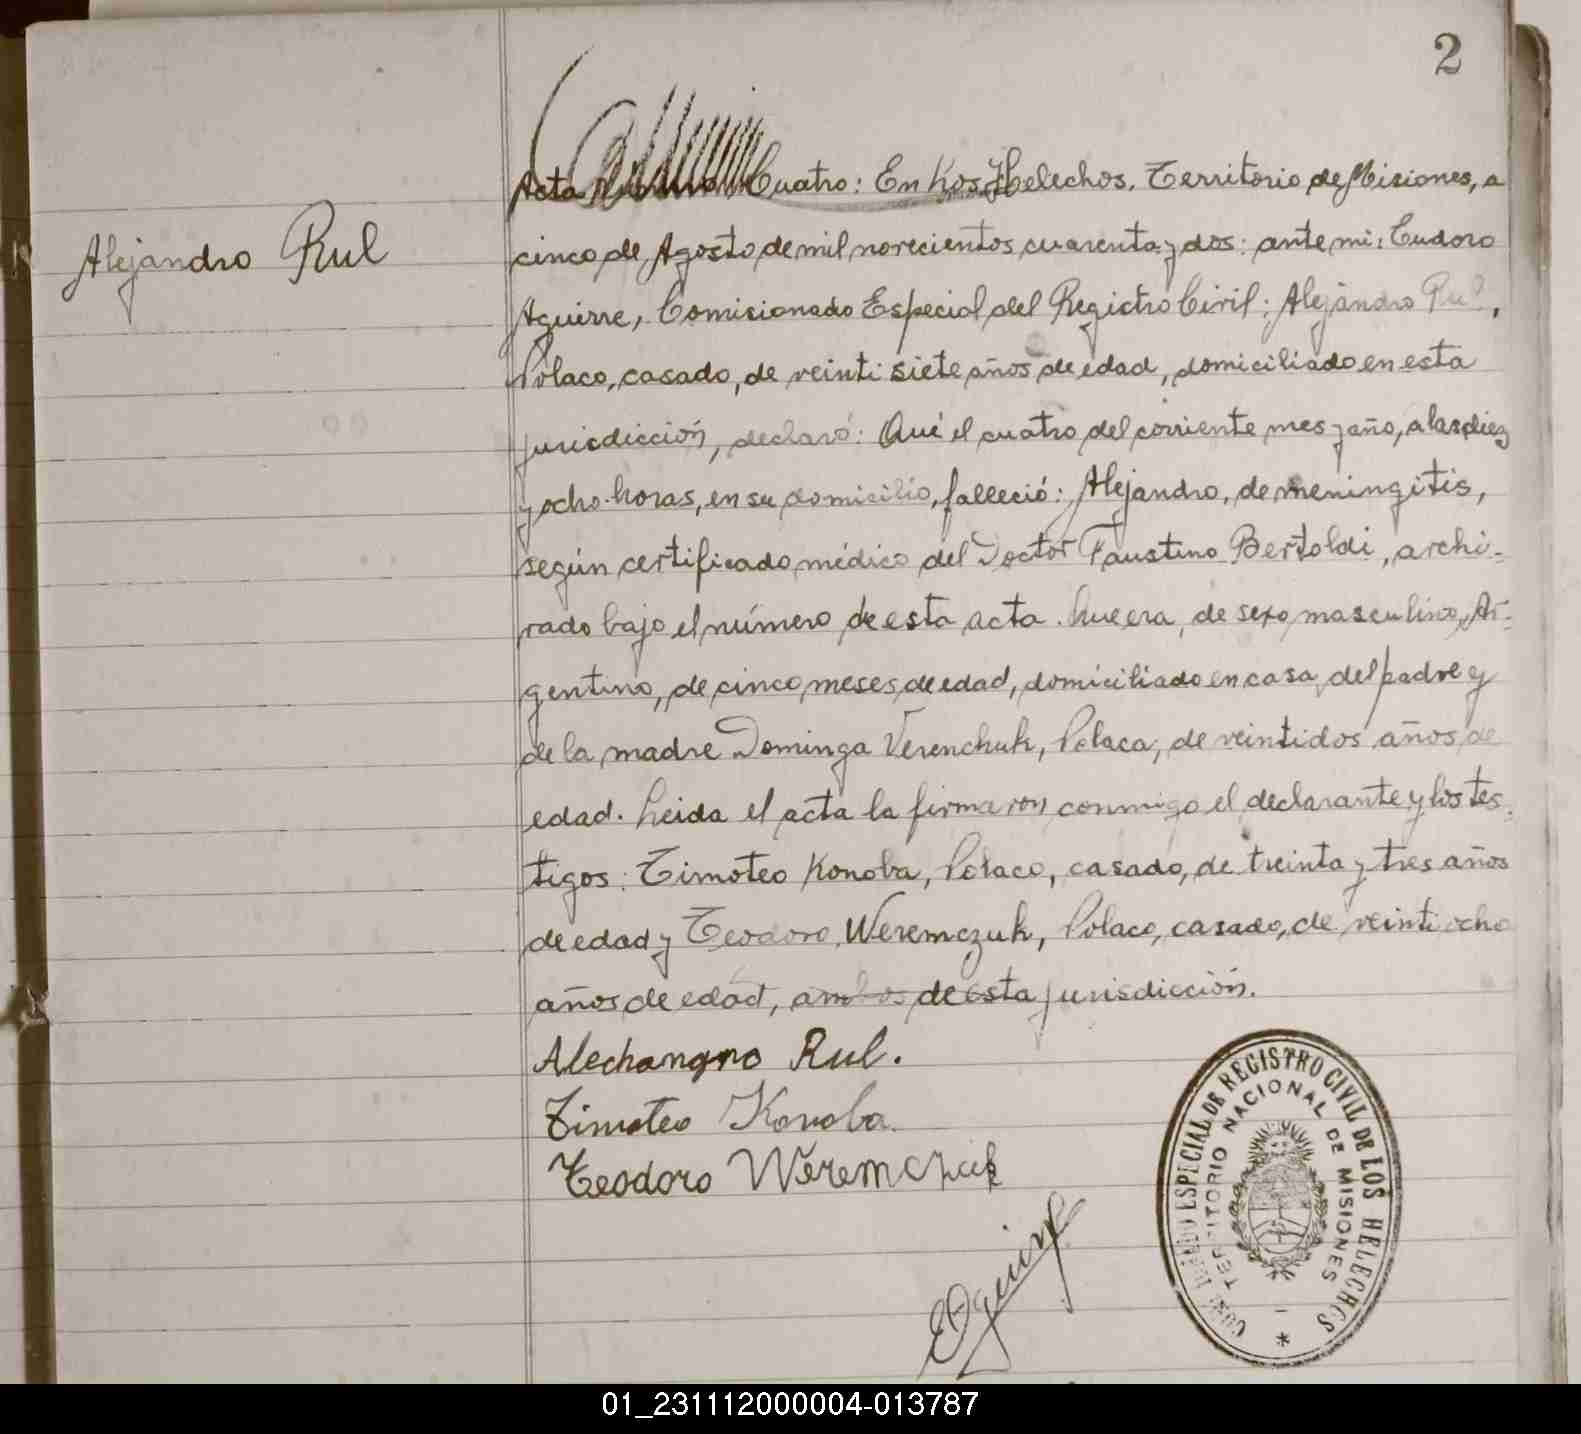 2
Alejandro Rul
Acta Número Cuatro: En Los Helechos, Territorio de Misiones, a
cinco de Agosto de mil novecientos cuarenta y dos: ante mi: Eudoro
Aguirre, Comisionado Especial del Registro Civil: Alejandro Rul,
Polaco, casado, de veinti siete años de edad, domiciliado en esta
jurisdicción, declaró: Qué el cuatro del corriente mes y año, a las diez
y ocho horas, en su domicilio, falleció: Alejandro, de meningitis,
según certificado médico del Doctor Faustino Bertoldi, archi-
vado bajo el número de esta acta. Que era, de sexo masculino, Ar-
gentino, de cinco meses de edad, domiciliado en casa del padre y
de la madre Dominga Verenchuk, Polaca, de veintidos años de
edad. Leida el acta la firmaron conmigo el declarante y los tes-
tigos: Timoteo Konoba, Polaco, casado, de treinta y tres años
de edad y Teodoro Weremczuk, Polaco, casado, de veinti ocho
años de edad, ambos de esta jurisdicción.
Alechangro Rul.
Timoteo Konoba.
Teodoro Weremczuk
EAguirre
COMISIONADO ESPECIAL DE REGISTRO CIVIL DE LOS HELECHOS
TERRITORIO NACIONAL DE MISIONES
01_231112000004-013787